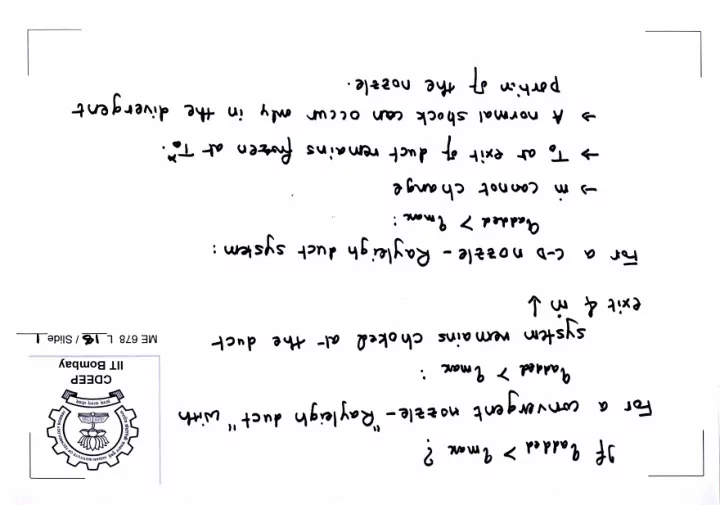 If q added > q max ?
For a convergent nozzle - "Rayleigh duct" with
q added > q max :
system remains choked at the duct
exit & ṁ ↓
For a C-D nozzle - Rayleigh duct system :
q added > q max :
→ ṁ cannot change
→ T₀ at exit of duct remains frozen at T₀*.
→ A normal shock can occur only in the divergent
portion of the nozzle.
CDEEP
IIT Bombay
ME 678 L 18 / Slide 1